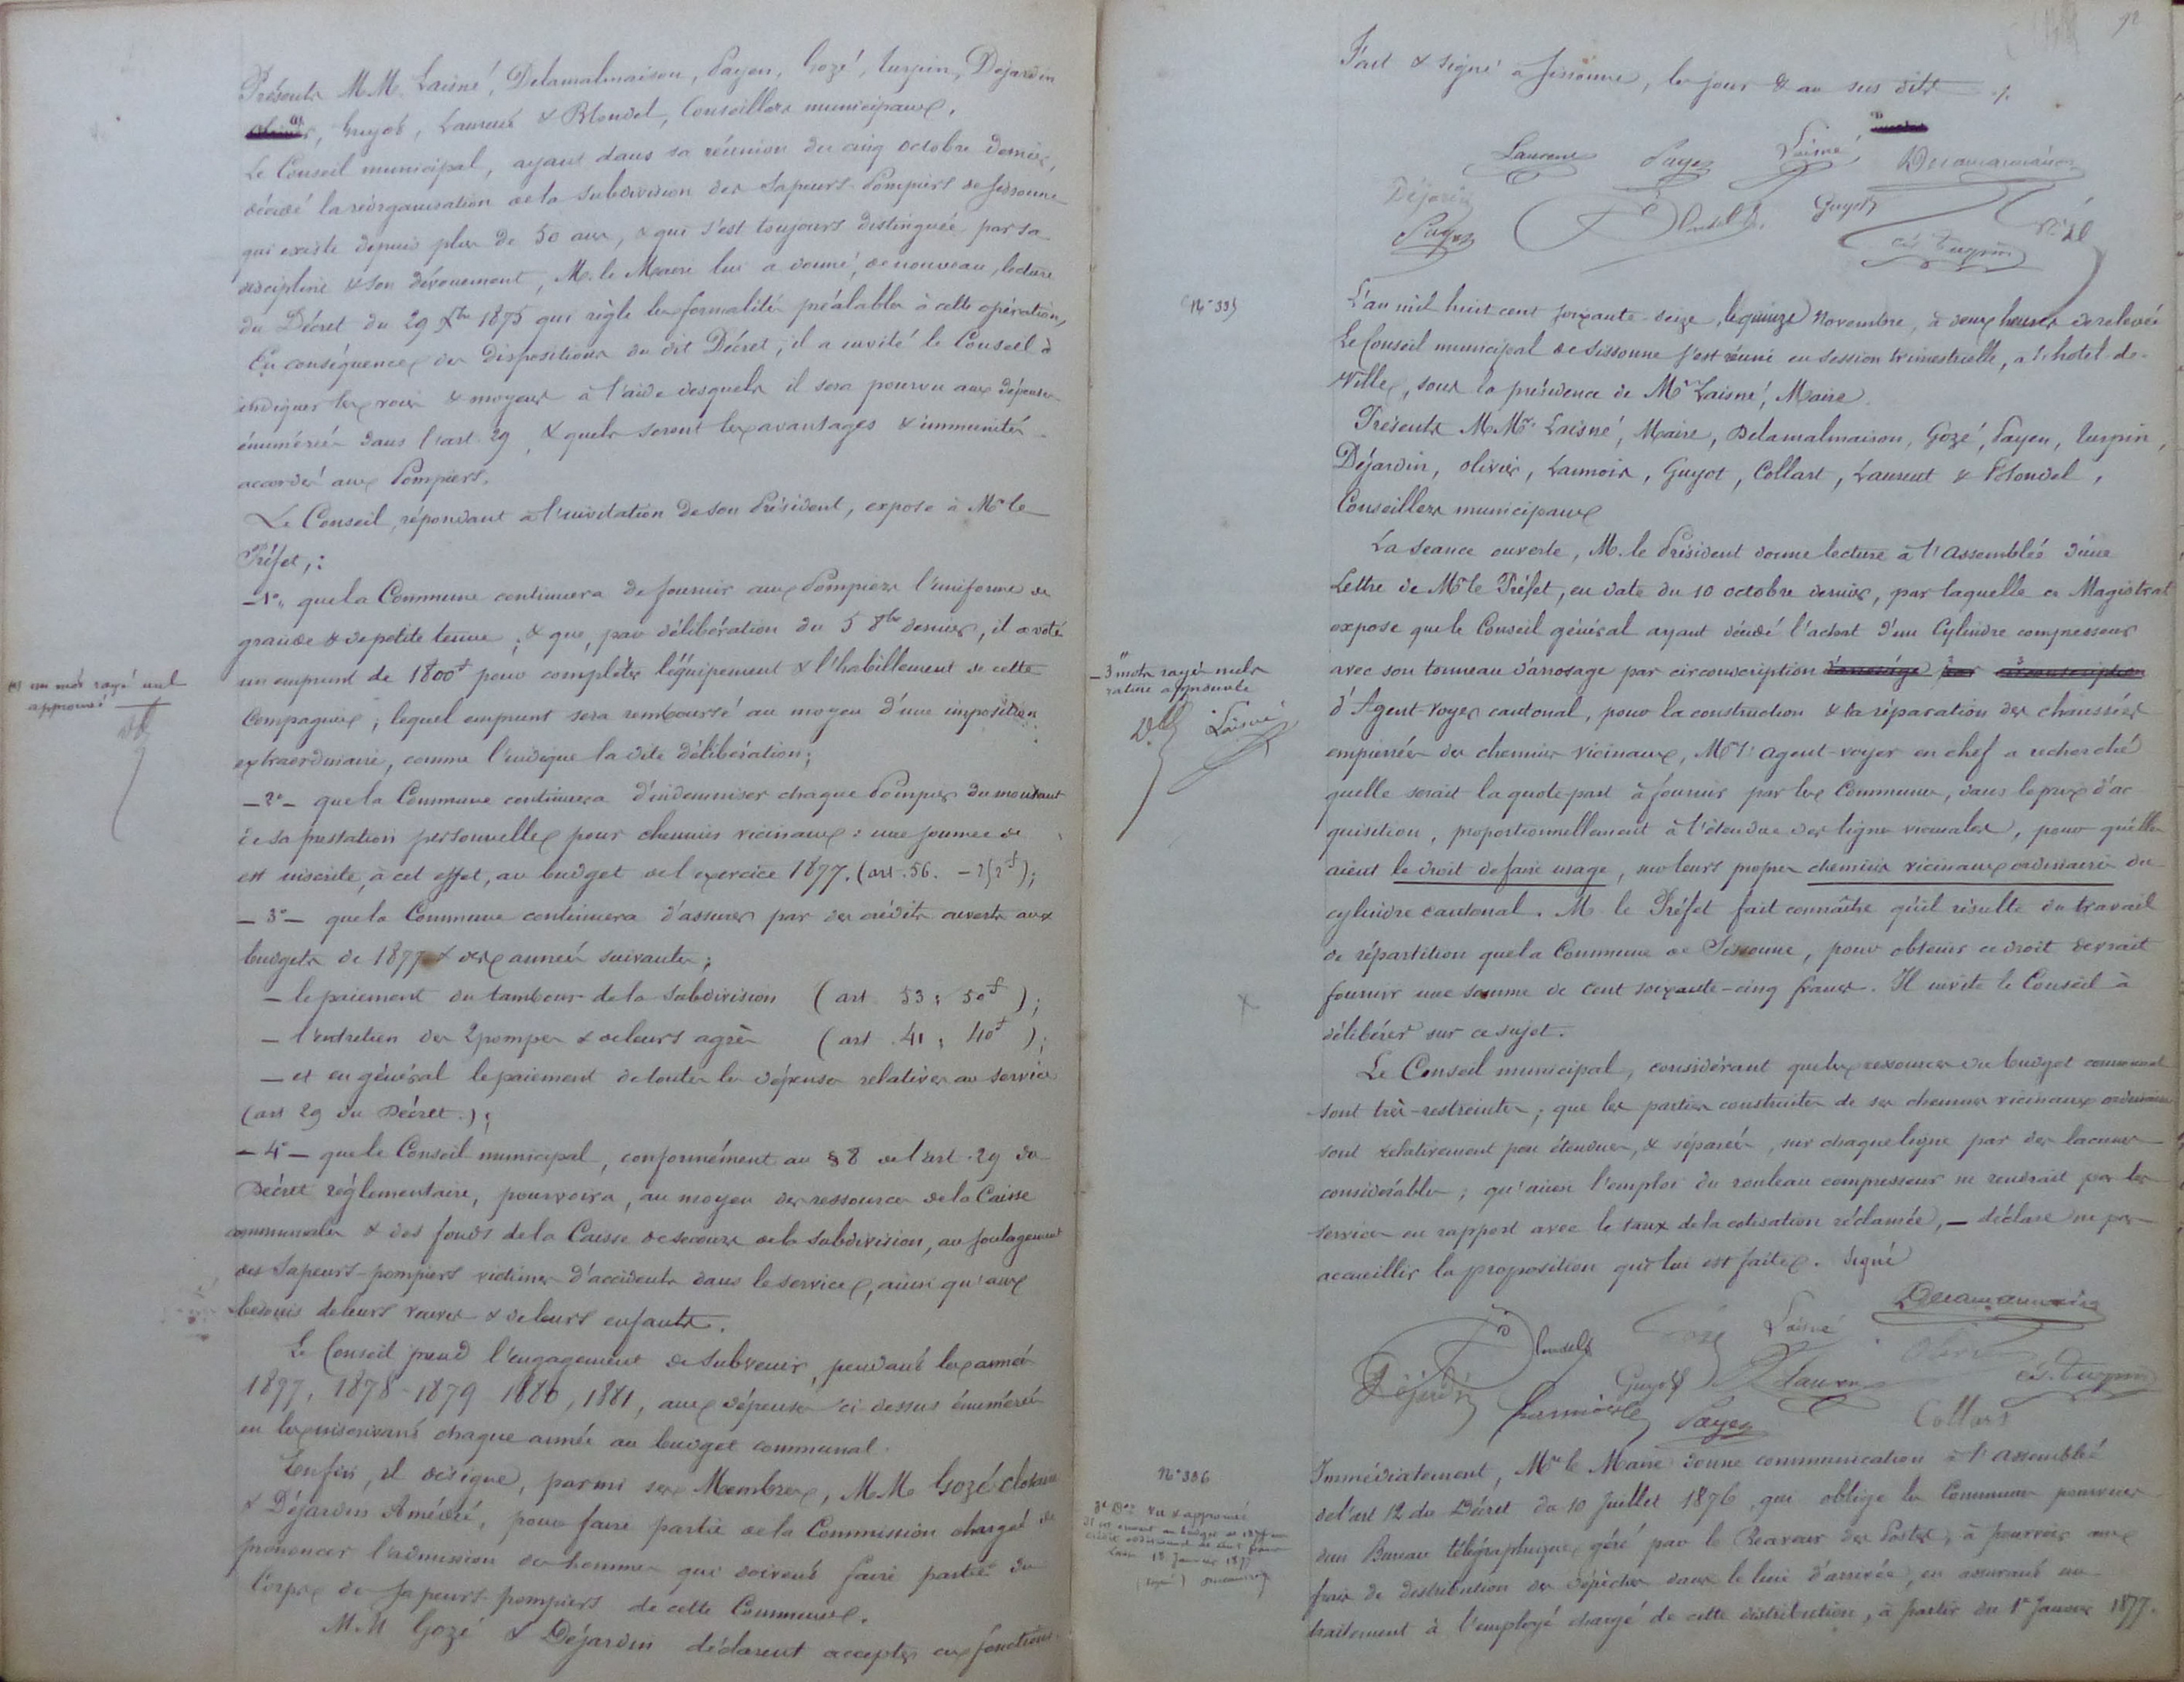 Présents M.M. Laisné, Delamalmaison, Payen, Gozé, Turpin, Dejardin
Guyot, Laurent & Blondel, Conseillers municipaux.
Le Conseil municipal, ayant dans sa réunion du cinq octobre dernier,
décidé la réorganisation de la subdivision des Sapeurs-Pompiers de Sissonne
qui existe depuis plus de 50 ans, & qui s'est toujours distinguée par sa
discipline & son dévouement, M. le Maire lui a donné, de nouveau, lecture
du Décret du 29 Xbre 1875 qui règle les formalités préalables à cette opération,
En conséquence des dispositions du dit Décret, il a invité le Conseil à
indiquer les voies & moyens à l'aide desquels il sera pourvu aux dépenses
énumérées dans l'art. 29, & quels seront les avantages & immunités
accordés aux Pompiers.
Le Conseil, répondant à l'invitation de son Président, expose à Mr le
Préfet, :
— 1° que la Commune continuera de fournir aux Pompiers l'uniforme de
grande & de petite tenue, & que, par délibération du 5 8bre dernier, il a voté
un emprunt de 1800f pour compléter l'équipement & l'habillement de cette
Compagnie ; lequel emprunt sera remboursé au moyen d'une imposition
extraordinaire, comme l'indique la dite délibération ;
— 2° — que la Commune continuera d'indemniser chaque Pompier du montant
de sa prestation personnelle pour chemins vicinaux : une journée de
est inscrite, à cet effet, au budget de l'exercice 1877. (art. 56. — 252f) ;
— 3° — que la Commune continuera d'assurer par des crédits ouverts aux
budgets de 1877 & des années suivantes ;
— le paiement du tambour de la subdivision (art 53 ; 50f) ;
— l'entretien des 2 pompes & de leurs agrès (art. 41 ; 40f) ;
— et en général le paiement de toutes les dépenses relatives au service
(art 29 du Décret.) ;
— 4° — que le Conseil municipal, conformément au § 8 de l'art. 29 du
Décret réglementaire, pourvoira, au moyen des ressources de la Caisse
communale & des fonds de la Caisse de secours de la subdivision, au soulagement
des Sapeurs-pompiers victimes d'accidents dans le service, ainsi qu'aux
besoins de leurs veuves & de leurs enfants.
Le Conseil prend l'engagement de subvenir, pendant les années
1877, 1878 - 1879 - 1880, 1881, aux dépenses ci-dessus énumérées
en les inscrivant chaque année au budget communal.
Enfin, il désigne, parmi ses Membres, M.M. Gozé
& Déjardin Amédée, pour faire partie de la Commission chargée de
prononcer l'admission des hommes qui doivent faire partie du
Corps de Sapeurs-pompiers de cette Commune.
M.M Gozé & Déjardin déclarent accepter ces fonctions.
un mot rayé nul
approuvé
92
Fait & signé à Sissonne, les jour & an sus dits ./.
Laurent Payen Laisné Delamalmaison
Déjardin Blondel Guyot
Payen Turpin
N° 335
L'an mil huit cent soixante-seize, le quinze Novembre, à deux heures de relevée
Le Conseil municipal de Sissonne s'est réuni en session trimestrielle, à l'hôtel-de-
Ville, sous la présidence de Mr Laisné, Maire.
Présents M.Mrs Laisné, Maire, Delamalmaison, Gozé, Payen, Turpin,
Déjardin, Olivier, Lamoir, Guyot, Collart, Laurent & Blondel,
Conseillers municipaux
La séance ouverte, M. le Président donne lecture à l'Assemblée d'une
Lettre de Mr le Préfet, en date du 10 octobre dernier, par laquelle ce Magistrat
expose que le Conseil général ayant décidé l'achat d'un Cylindre compresseur
avec son tonneau d'arrosage par circonscription d'arrosage par circonscription
d'Agent-Voyer cantonal, pour la construction & la réparation des chaussées
empierrées des chemins vicinaux, Mr l'agent-voyer en chef a recherché
quelle serait la quote part à fournir par les Communes, dans le prix d'ac
quisition, proportionnellement à l'étendue des lignes vicinales, pour qu'elles
aient le droit de faire usage, sur leurs propres chemins vicinaux ordinaires du
cylindre cantonal. M. le Préfet fait connaître qu'il résulte du travail
de répartition que la Commune de Sissonne, pour obtenir ce droit devrait
fournir une somme de cent soixante-cinq francs. Il invite le Conseil à
délibérer sur ce sujet.
Le Conseil municipal, considérant que les ressources du budget communal
sont très-restreintes ; que les parties construites de ses chemins vicinaux ordinaires
sont relativement peu étendues, & séparées, sur chaque ligne par des lacunes
considérables ; qu'ainsi l'emploi du rouleau compresseur ne rendrait pas des
services en rapport avec le taux de la cotisation réclamée, — déclare ne pas
accueillir la proposition qui lui est faite. Signé
— 3 mots rayés nuls
rature approuvée
Laisné
Delamalmaison
Blondel Gozé Laisné Olivier
Déjardin Guyot Laurent Turpin
Payen Collart
N° 336
Immédiatement, Mr le Maire donne communication à l'assemblée
de l'art 12 du Décret du 10 Juillet 1876, qui oblige les Communes pourvues
d'un Bureau télégraphique géré par le Receveur des Postes, à pourvoir aux
frais de distribution des dépêches dans le lieu d'arrivée, en assurant un
traitement à l'employé chargé de cette distribution, à partir du 1er Janvier 1877.
Vu & approuvé
Laon 18 Janvier 1877
(signé)